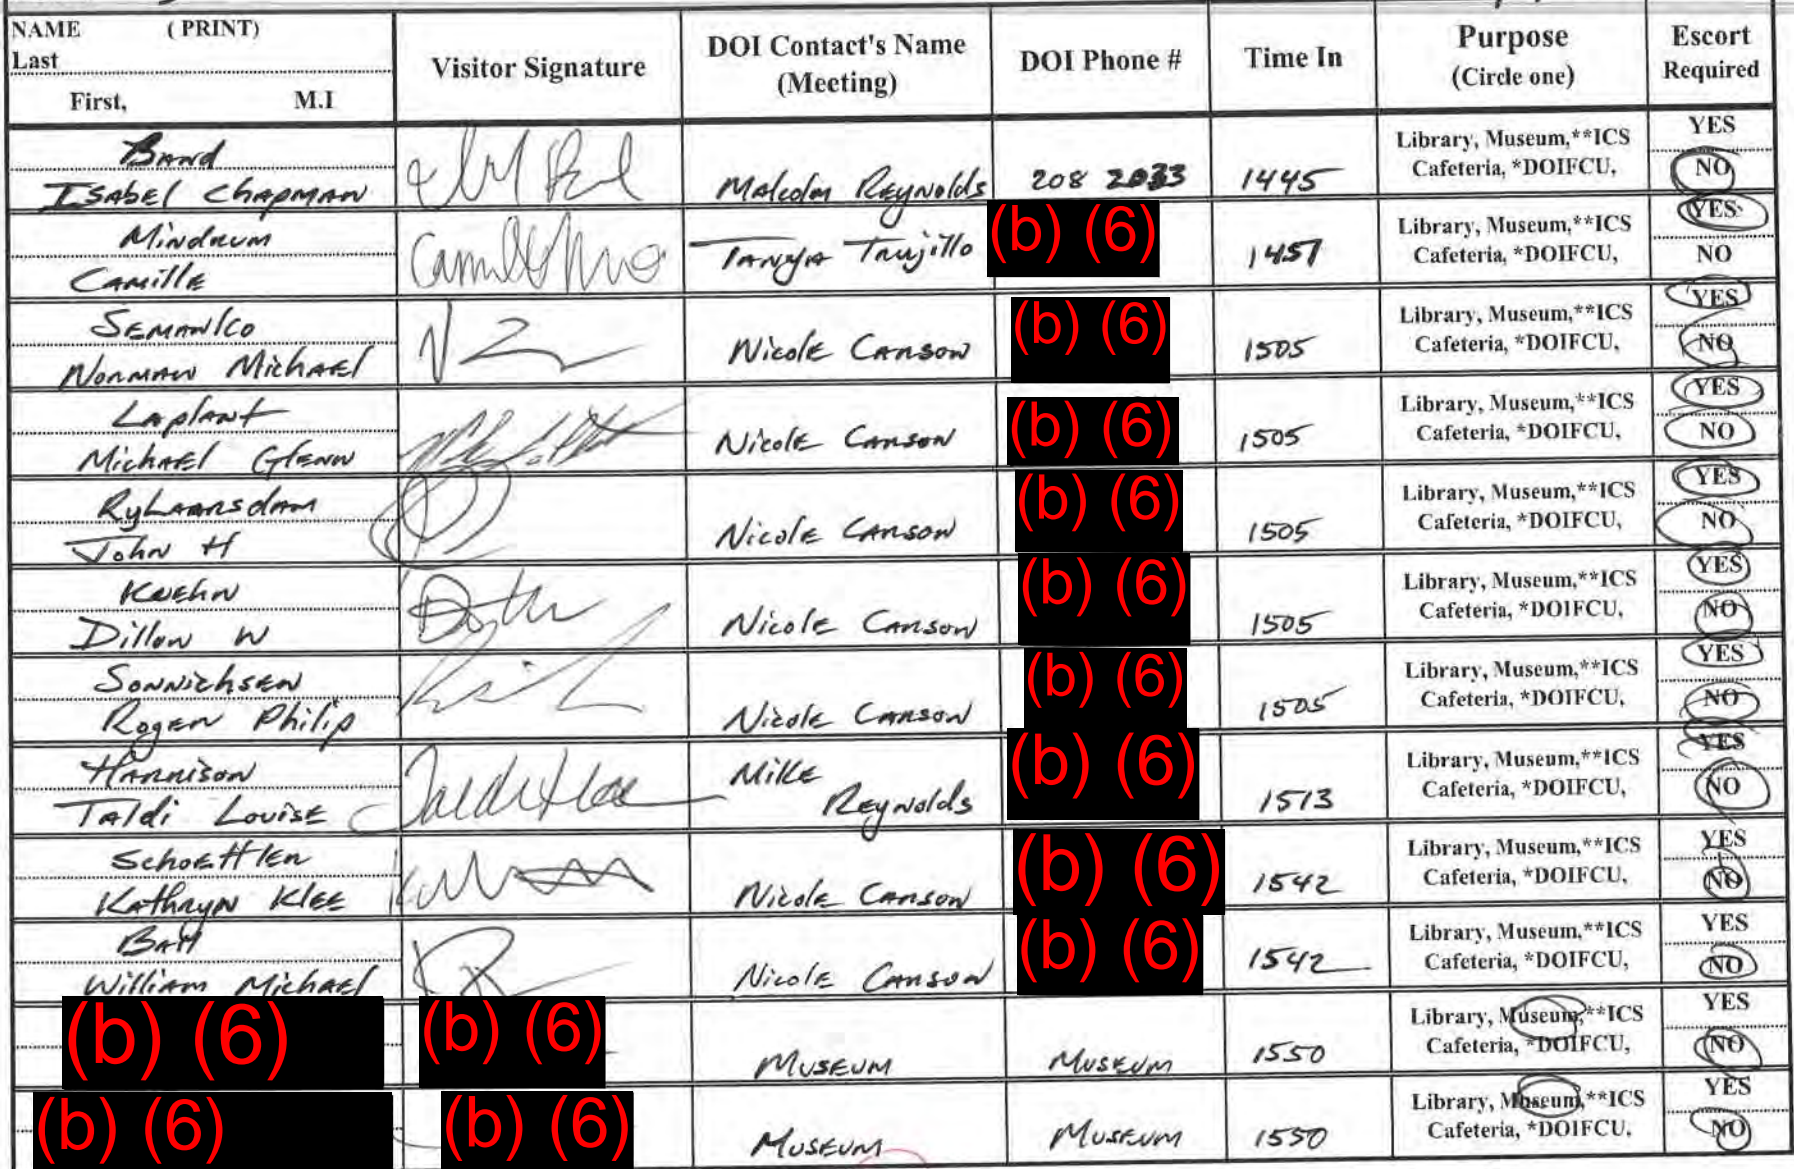 NAME ( PRINT)
Last
First, M.I
Visitor Signature
DOI Contact's Name
(Meeting)
DOI Phone #
Time In
Purpose
(Circle one)
Escort
Required
Band
Isabel Chapman
Malcolm Reynolds
208 2033
1445
Library, Museum,**ICS
Cafeteria, *DOIFCU,
YES
NO
Mindrum
Camille
Tanya Trujillo
(b) (6)
1451
Library, Museum,**ICS
Cafeteria, *DOIFCU,
YES
NO
Semanko
Norman Michael
Nicole Carson
(b) (6)
1505
Library, Museum,**ICS
Cafeteria, *DOIFCU,
YES
NO
Laplant
Michael Glenn
Nicole Carson
(b) (6)
1505
Library, Museum,**ICS
Cafeteria, *DOIFCU,
YES
NO
Rylaarsdam
John H
Nicole Carson
(b) (6)
1505
Library, Museum,**ICS
Cafeteria, *DOIFCU,
YES
NO
Kuehn
Dillon W
Nicole Carson
(b) (6)
1505
Library, Museum,**ICS
Cafeteria, *DOIFCU,
YES
NO
Sonnichsen
Roger Philip
Nicole Carson
(b) (6)
1505
Library, Museum,**ICS
Cafeteria, *DOIFCU,
YES
NO
Harrison
Taldi Louise
Mike
Reynolds
(b) (6)
1513
Library, Museum,**ICS
Cafeteria, *DOIFCU,
YES
NO
Schoettler
Kathryn Klee
Nicole Carson
(b) (6)
1542
Library, Museum,**ICS
Cafeteria, *DOIFCU,
YES
NO
Ball
William Michael
Nicole Carson
(b) (6)
1542
Library, Museum,**ICS
Cafeteria, *DOIFCU,
YES
NO
(b) (6)
(b) (6)
Museum
Museum
1550
Library, Museum,**ICS
Cafeteria, *DOIFCU,
YES
NO
(b) (6)
(b) (6)
Museum
Museum
1550
Library, Museum,**ICS
Cafeteria, *DOIFCU,
YES
NO